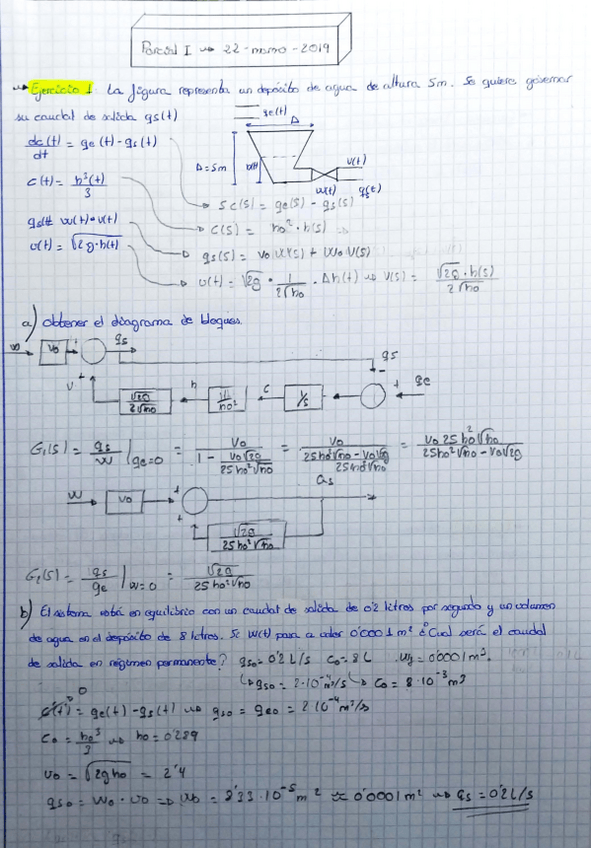 Parcial I → 22-marzo-2019
→ Ejercicio 1. La figura representa un depósito de agua de altura 5m. Se quiere governar
su caudal de salida qs(t)
qe(t)
Δ
dc(t)/dt = qe(t) - qs(t)
Δ=5m
h(t)
v(t)
w(t)
qs(t)
c(t) = h³(t)/3
→ SC(S) = qe(S) - qs(S)
→ C(S) = ho²·h(S)
qs(t) w(t)·v(t)
→ qs(S) = Vo W(S) + Wo V(S)
v(t) = √2g·h(t)
→ v(t) = √2g · 1/2√ho · Δh(t) → V(S) = √2g·h(S)/2√ho
a) obtener el diagrama de bloques.
w
Vo
+
qs
qs
V
+
√2g/2√ho
h
1/ho²
c
1/s
-
+
qe
G1(S) = qs/W |qe=0 = Vo/1 - Vo√2g/2Sho²√ho = Vo/2Sho²√ho - Vo√2g/2Sho²√ho = Vo 2Sho²√ho/2Sho²√ho - Vo√2g
W
Vo
+
Qs
+
√2g/2Sho²√ho
G2(S) = qs/qe |w=0 = √2g/2Sho²√ho
b) El sistema está en equilibrio con un caudal de salida de 0'2 litros por segundo y un volumen
de agua en el depósito de 8 litros. Si W(t) pasa a valer 0'0001 m² ¿Cual será el caudal
de salida en régimen permanente? qso = 0'2 L/s Co = 8L Wf = 0'0001 m².
↳ qso = 2·10⁻⁴ m³/s ↳ Co = 8·10⁻³ m³
0
c(t) = qe(t) - qs(t) → qso = qeo = 2·10⁻⁴ m³/s
Co = ho³/3 → ho = 0'289
vo = √2gho = 2'4
qso = Wo·vo ⇒ Wo = 8'33·10⁻⁵ m² ≈ 0'0001 m² → qs = 0'2 L/s